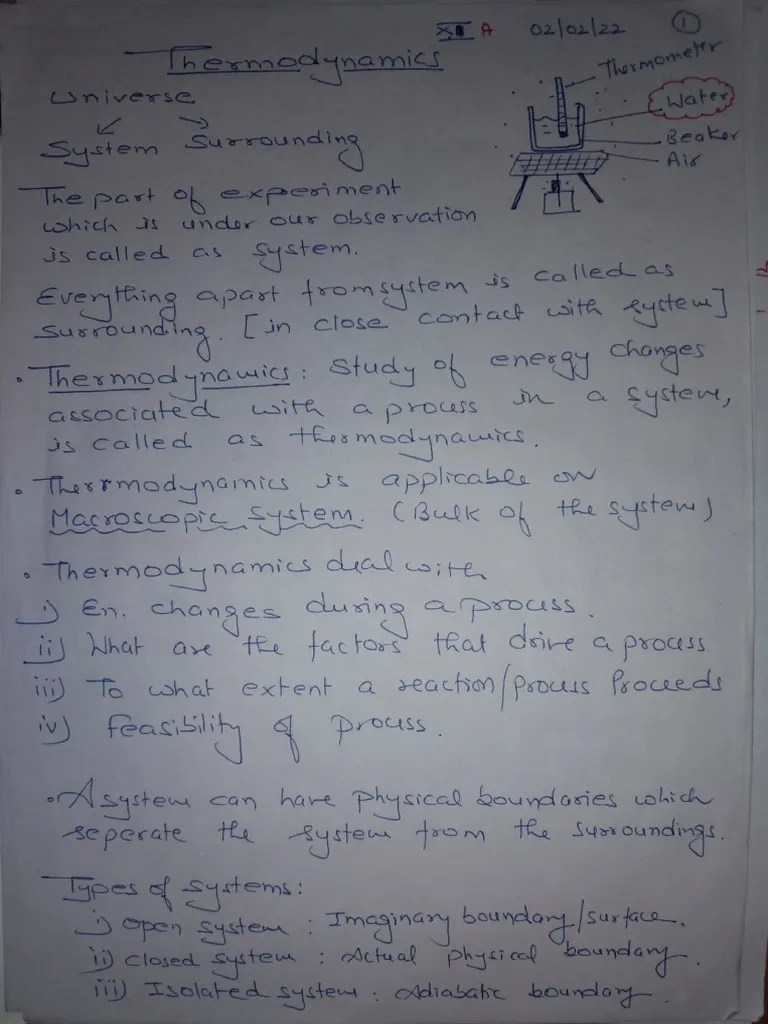 XII A 02/02/22 1
Thermodynamics
Thermometer
Water
Beaker
Air
Universe
System Surrounding
The part of experiment
which is under our observation
is called as system.
Everything apart from system is called as
surrounding. [in close contact with system]
• Thermodynamics: Study of energy changes
associated with a process in a system,
is called as thermodynamics.
• Thermodynamics is applicable on
Macroscopic System. (Bulk of the system)
• Thermodynamics deal with
i) En. changes during a process.
ii) What are the factors that drive a process
iii) To what extent a reaction/process Proceeds
iv) Feasibility of process.
• A system can have physical boundaries which
seperate the system from the surroundings.
Types of systems:
i) Open system : Imaginary boundary/surface.
ii) Closed system : Actual physical boundary.
iii) Isolated system : Adiabatic boundary.